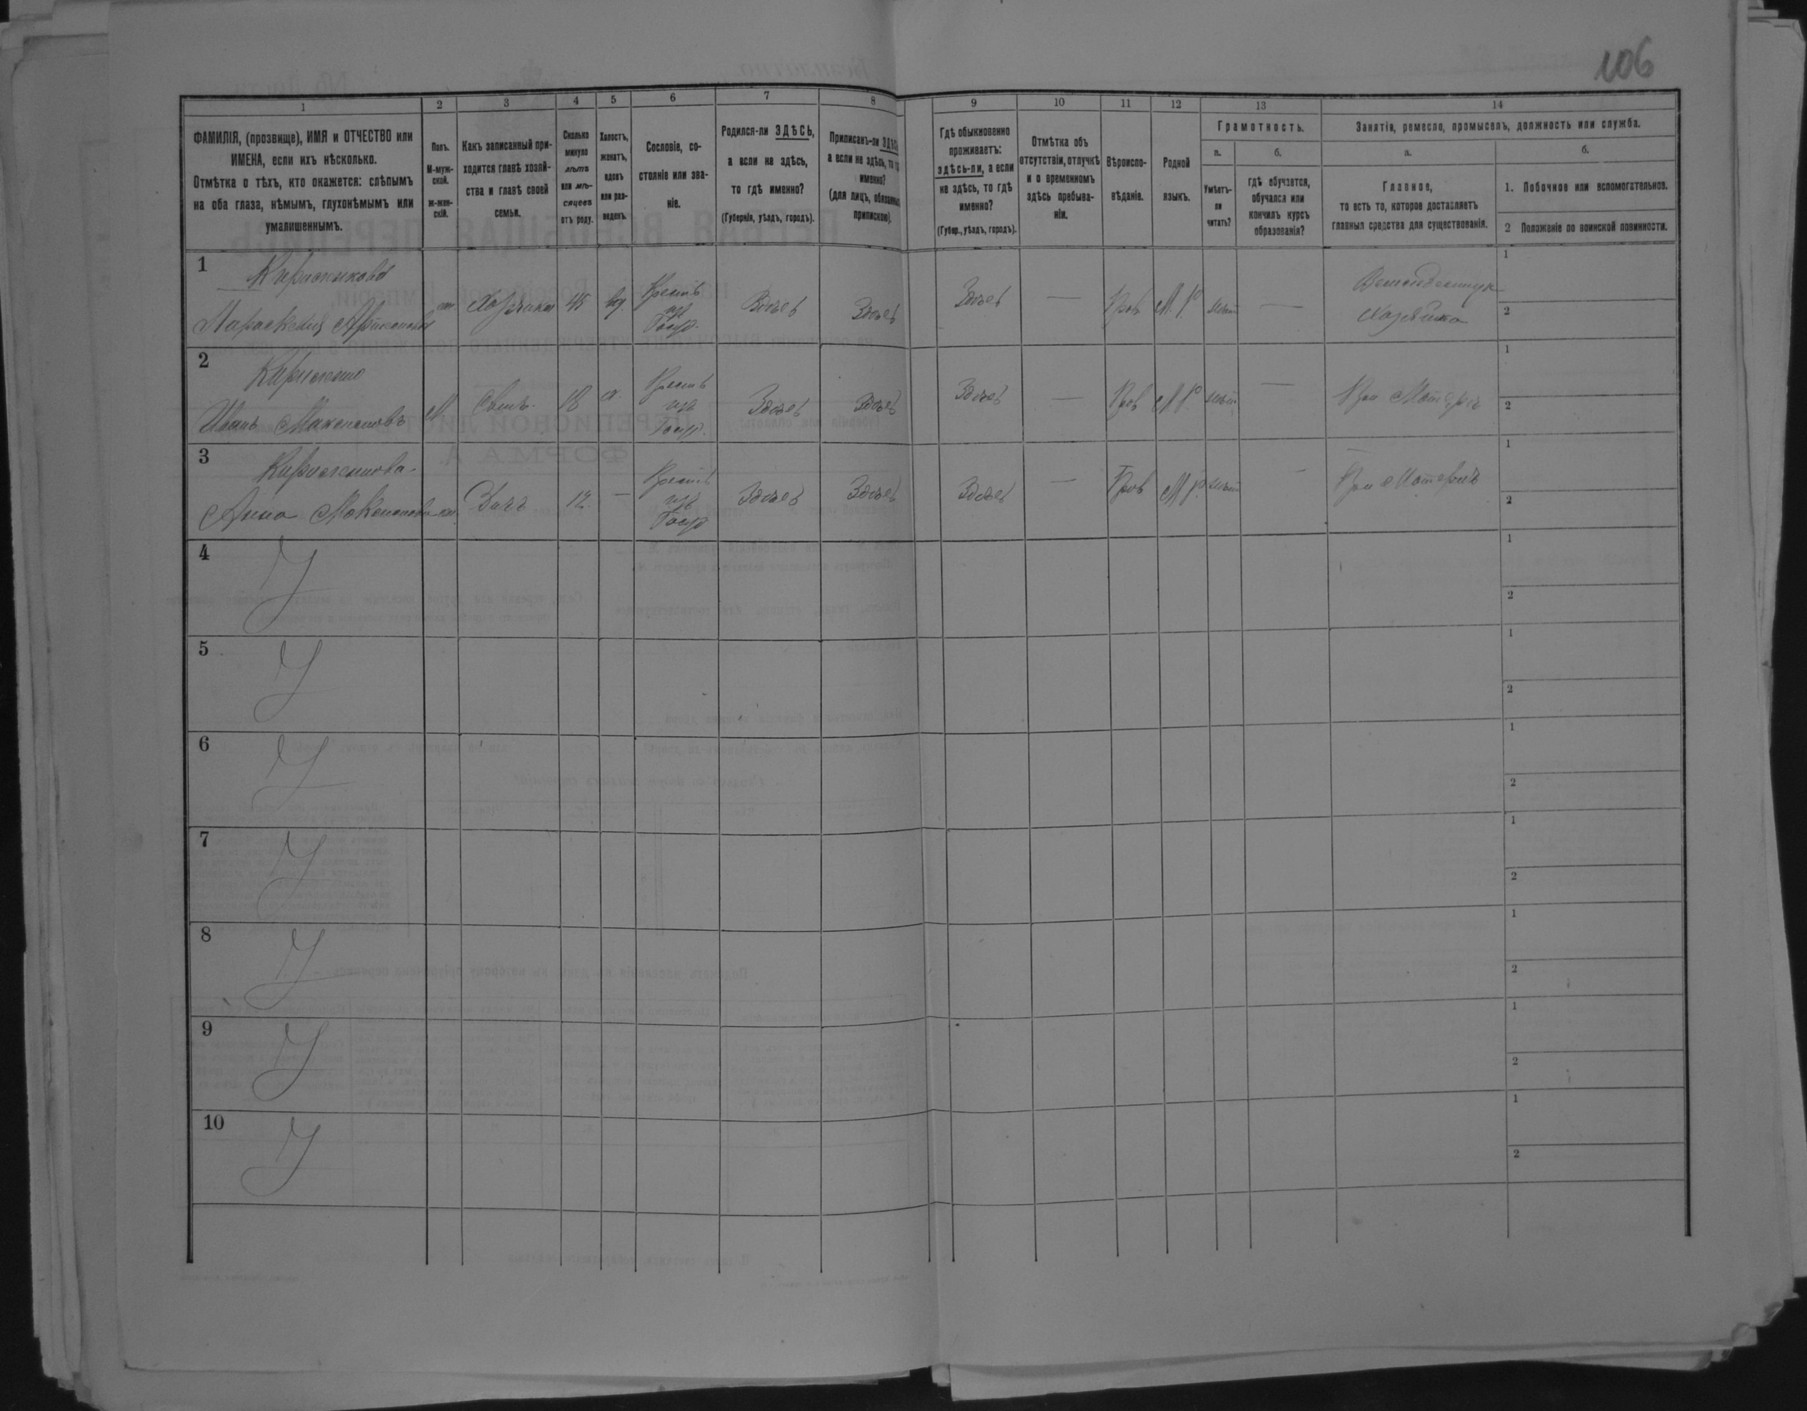 106
1 2 3 4 5 6 7 8 9 10 11 12 13 14
ФАМИЛІЯ, (прозвище), ИМЯ и ОТЧЕСТВО или
ИМЕНА, если ихъ нѣсколько.
Отмѣтка о тѣхъ, кто окажется: слѣпымъ
на оба глаза, нѣмымъ, глухонѣмымъ или
умалишеннымъ.
Полъ.
М-муж-
ской.
ж-жен-
скій.
Какъ записанный при-
ходится главѣ хозяй-
ства и главѣ своей
семьи.
Сколько
минуло
лѣтъ
или мѣ-
сяцевъ
отъ роду.
Холостъ,
женатъ,
вдовъ
или раз-
веденъ.
Сословіе, со-
стояніе или зва-
ніе.
Родился-ли ЗДѢСЬ,
а если не здѣсь,
то гдѣ именно?
(Губернія, уѣздъ, городъ).
Приписанъ-ли ЗДѢСЬ,
а если не здѣсь, то гдѣ
именно?
(для лицъ, обязанныхъ
припиской).
Гдѣ обыкновенно
проживаетъ:
здѣсь-ли, а если
не здѣсь, то гдѣ
именно?
(Губер., уѣздъ, городъ).
Отмѣтка объ
отсутствіи, отлучкѣ
и о временномъ
здѣсь пребыва-
ніи.
Вѣроиспо-
вѣданіе.
Родной
языкъ.
Грамотность.
а.
Умѣетъ-
ли
читать?
б.
гдѣ обучается,
обучался или
кончилъ курсъ
образованія?
Занятія, ремесло, промыселъ, должность или служба.
а.
Главное,
то есть то, которое доставляетъ
главныя средства для существованія.
б.
1. Побочное или вспомогательное.
2 Положеніе по воинской повинности.
1
Параскевія
Хозяйка 45 вд. Крестъ
изъ
Госуд.
Здѣсь Здѣсь Здѣсь — Прав М. Р нѣтъ —
Хозяйка
1
2
2
Иванъ
М Сынъ 18 х Крестъ
изъ
Госуд.
Здѣсь Здѣсь Здѣсь — Прав М Р нѣтъ — При Матери
1
2
3
Анна
Дочь 12 — Крестъ
изъ
Госуд
Здѣсь Здѣсь Здѣсь — Прав М Р. нѣтъ — При Матери
1
2
4
1
2
5
1
2
6
1
2
7
1
2
8
1
2
9
1
2
10
1
2